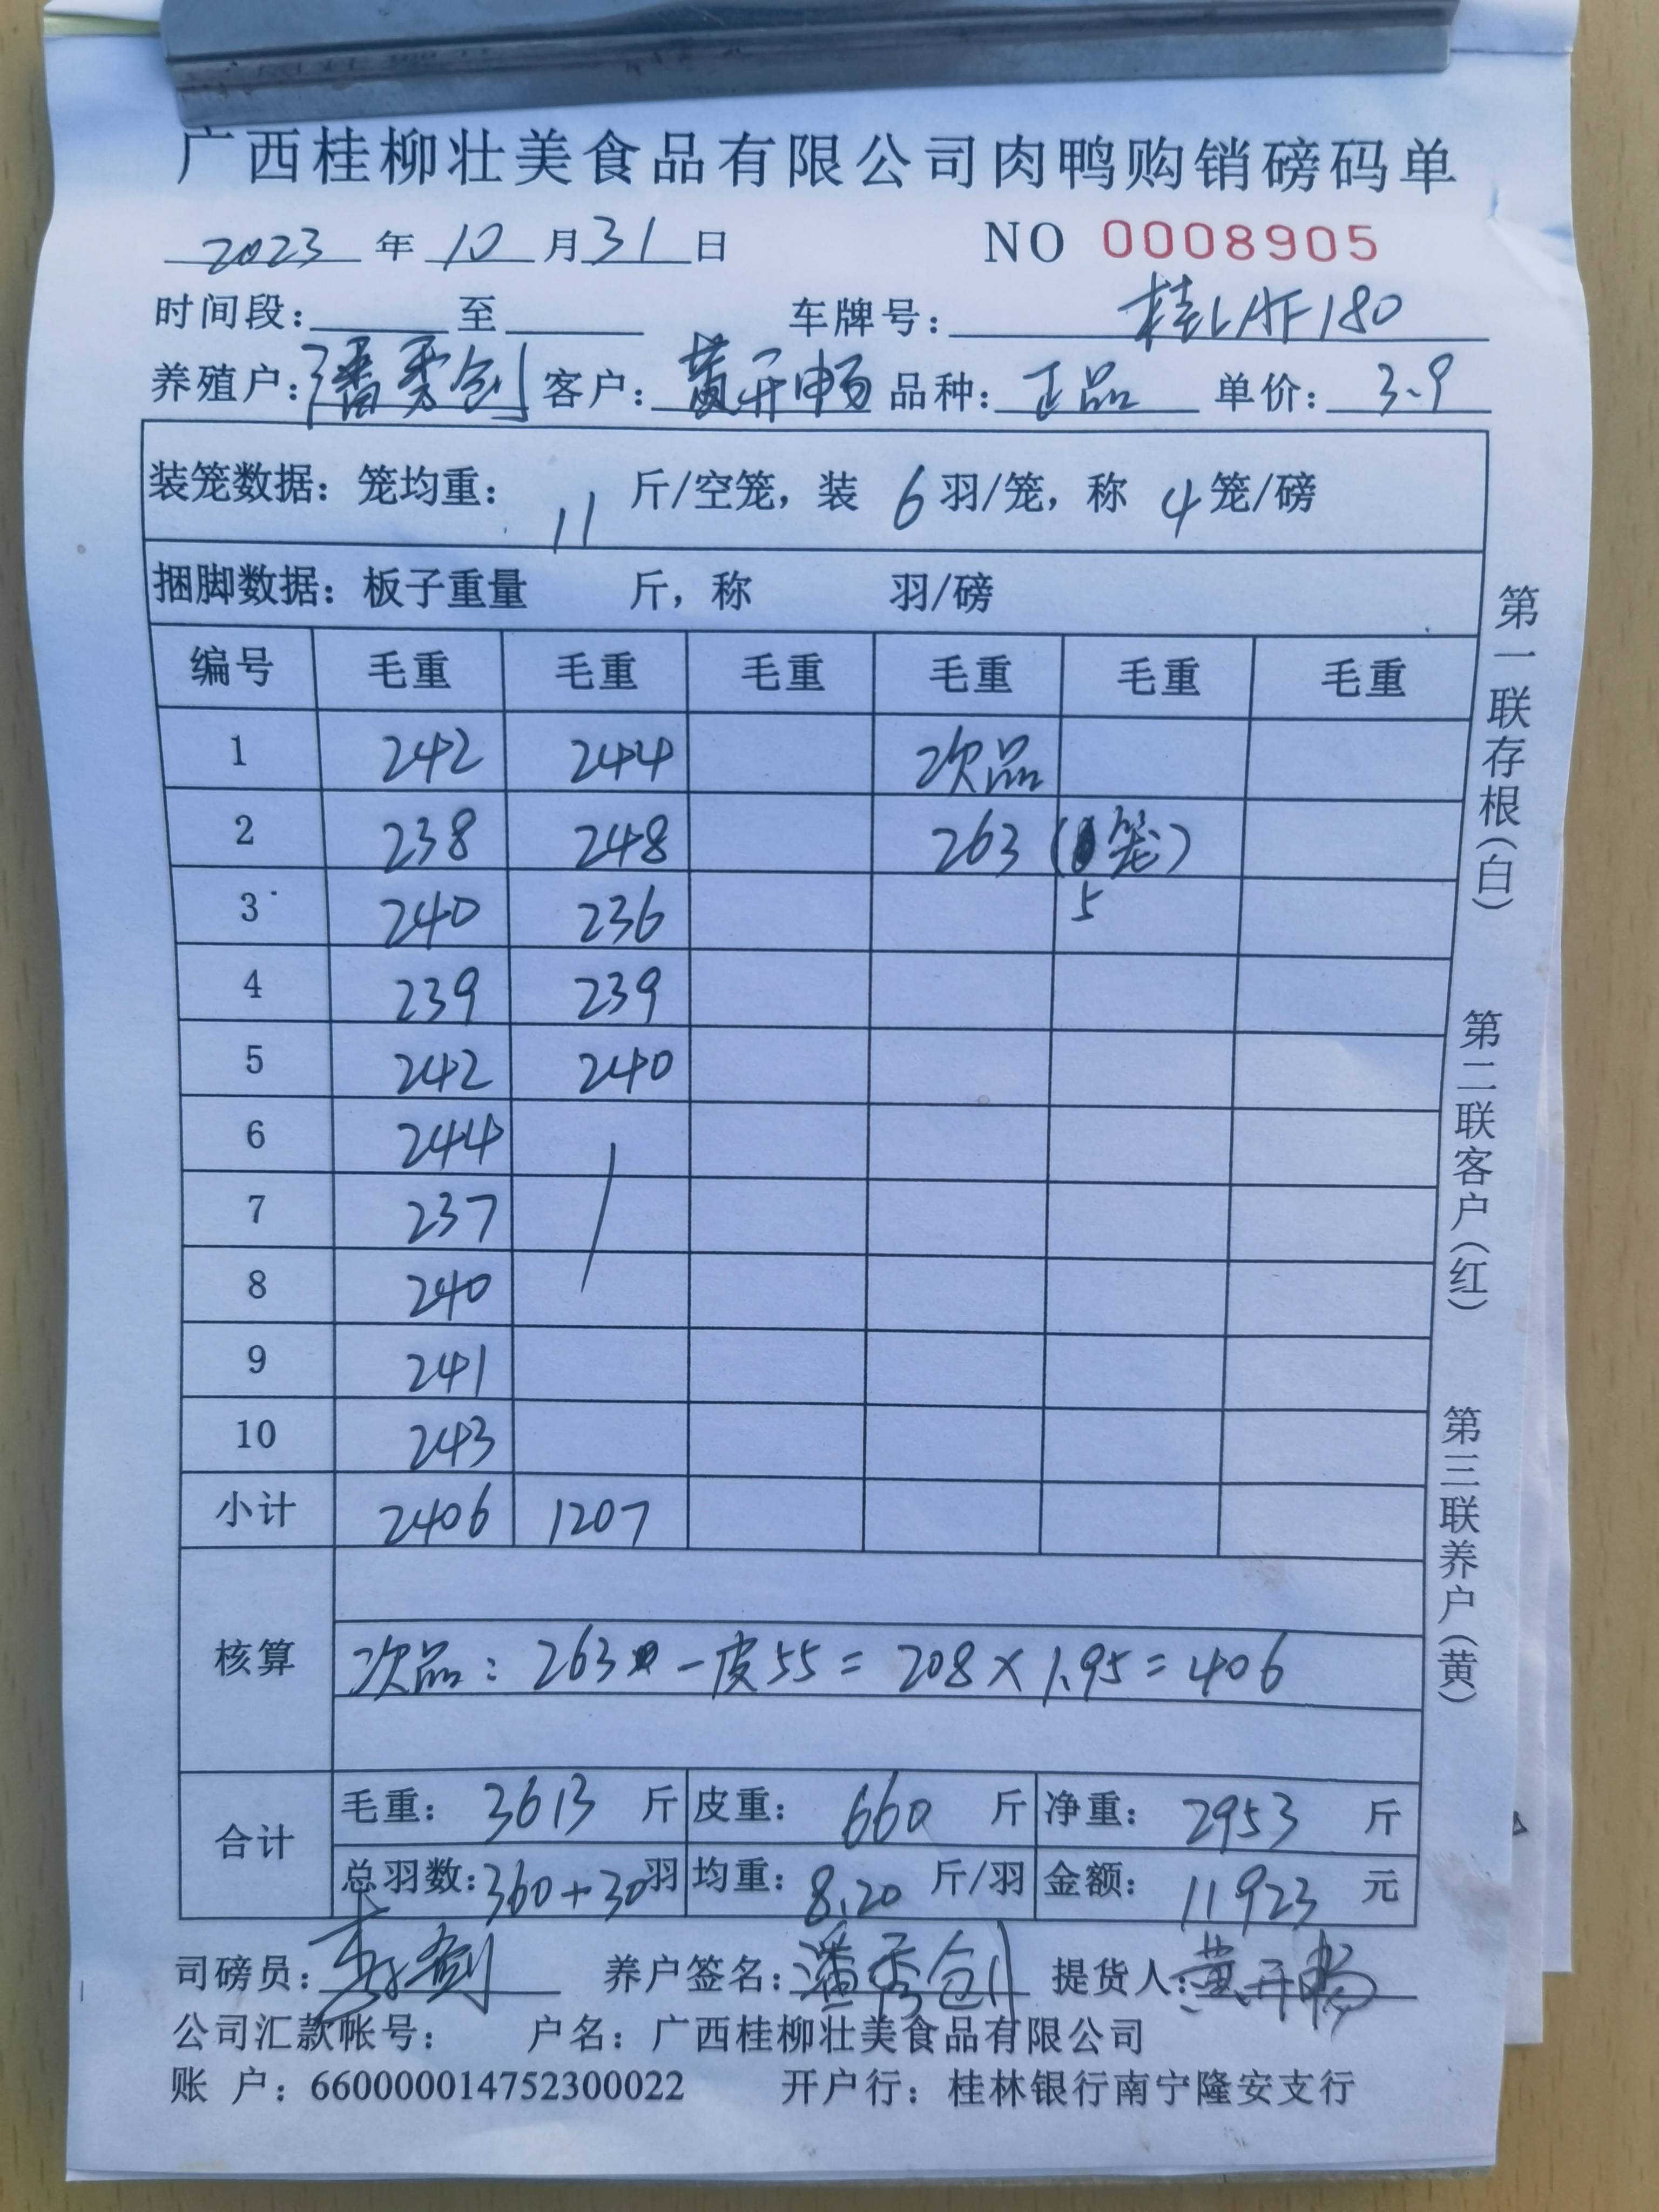 广西桂柳壮美食品有限公司肉鸭购销磅码单
2023 年 10 月 31 日 NO 0008905
时间段: 至 车牌号: 桂LAF180
养殖户: 潘秀剑 客户: 黄开畅 品种: 正品 单价: 3.9
装笼数据: 笼均重: 11 斤/空笼, 装 6 羽/笼, 称 4 笼/磅
捆脚数据: 板子重量 斤, 称 羽/磅
编号 毛重 毛重 毛重 毛重 毛重 毛重
1 242 244 次品
2 238 248 263 (笼)
3 240 236 5
4 239 239
5 242 240
6 244
7 237
8 240
9 241
10 243
小计 2406 1207
核算 次品: 263 - 皮55 = 208 × 1.95 = 406
合计 毛重: 3613 斤 皮重: 660 斤 净重: 2953 斤
总羽数: 360+30 羽 均重: 8.20 斤/羽 金额: 11923 元
司磅员: 养户签名: 潘秀剑 提货人: 黄开畅
公司汇款帐号: 户名: 广西桂柳壮美食品有限公司
账 户: 660000014752300022 开户行: 桂林银行南宁隆安支行
第一联存根(白)
第二联客户(红)
第三联养户(黄)